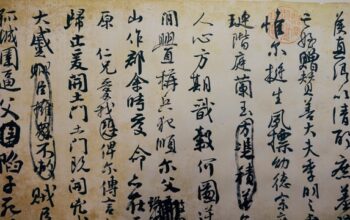 侯真卿以清酌庶羞
亡姪贈贊善大夫季明之
惟爾挺生夙標幼德宗
璉階庭蘭玉方憑積善
人心方期戩穀何圖逆
間釁稱兵犯順爾父
山作郡余時受命亦在
原仁兄愛我俾爾傳言
歸止爰開土門土門既開兇
大蹙賊臣擁衆不救賊臣
孤城圍逼父陷子死